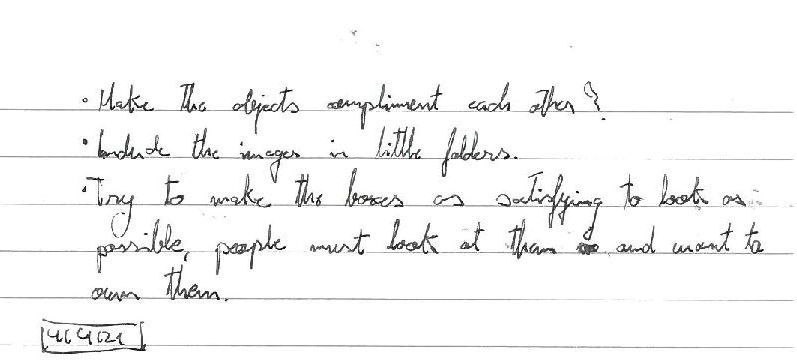 • Make the objects compliment each other?
• Include the images in little folders.
• Try to make the boxes as satisfying to look as
possible, people must look at them and want to
own them.